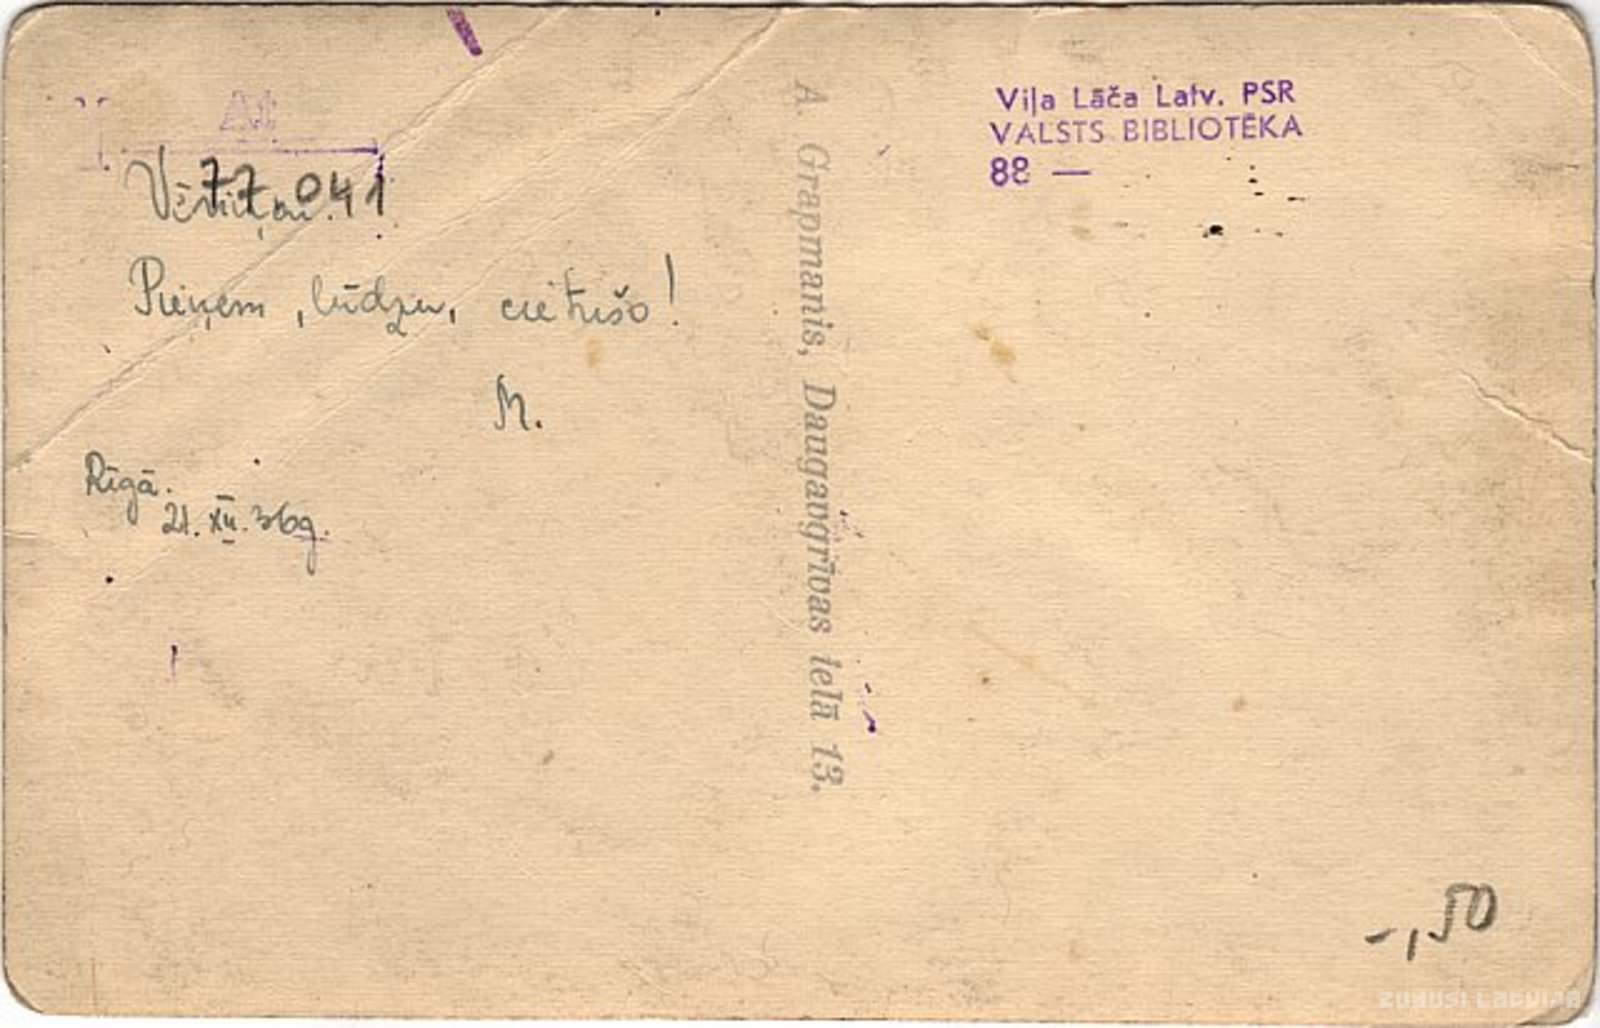 At
77.041
Pieņem, lūdzu, cietušo!
M.
Rīgā.
21. XII. 36g.
A. Grapmanis, Daugavgrīvas ielā 13.
Viļa Lāča Latv. PSR
VALSTS BIBLIOTĒKA
88 —
-,50
ZUDUSI LATVIJA